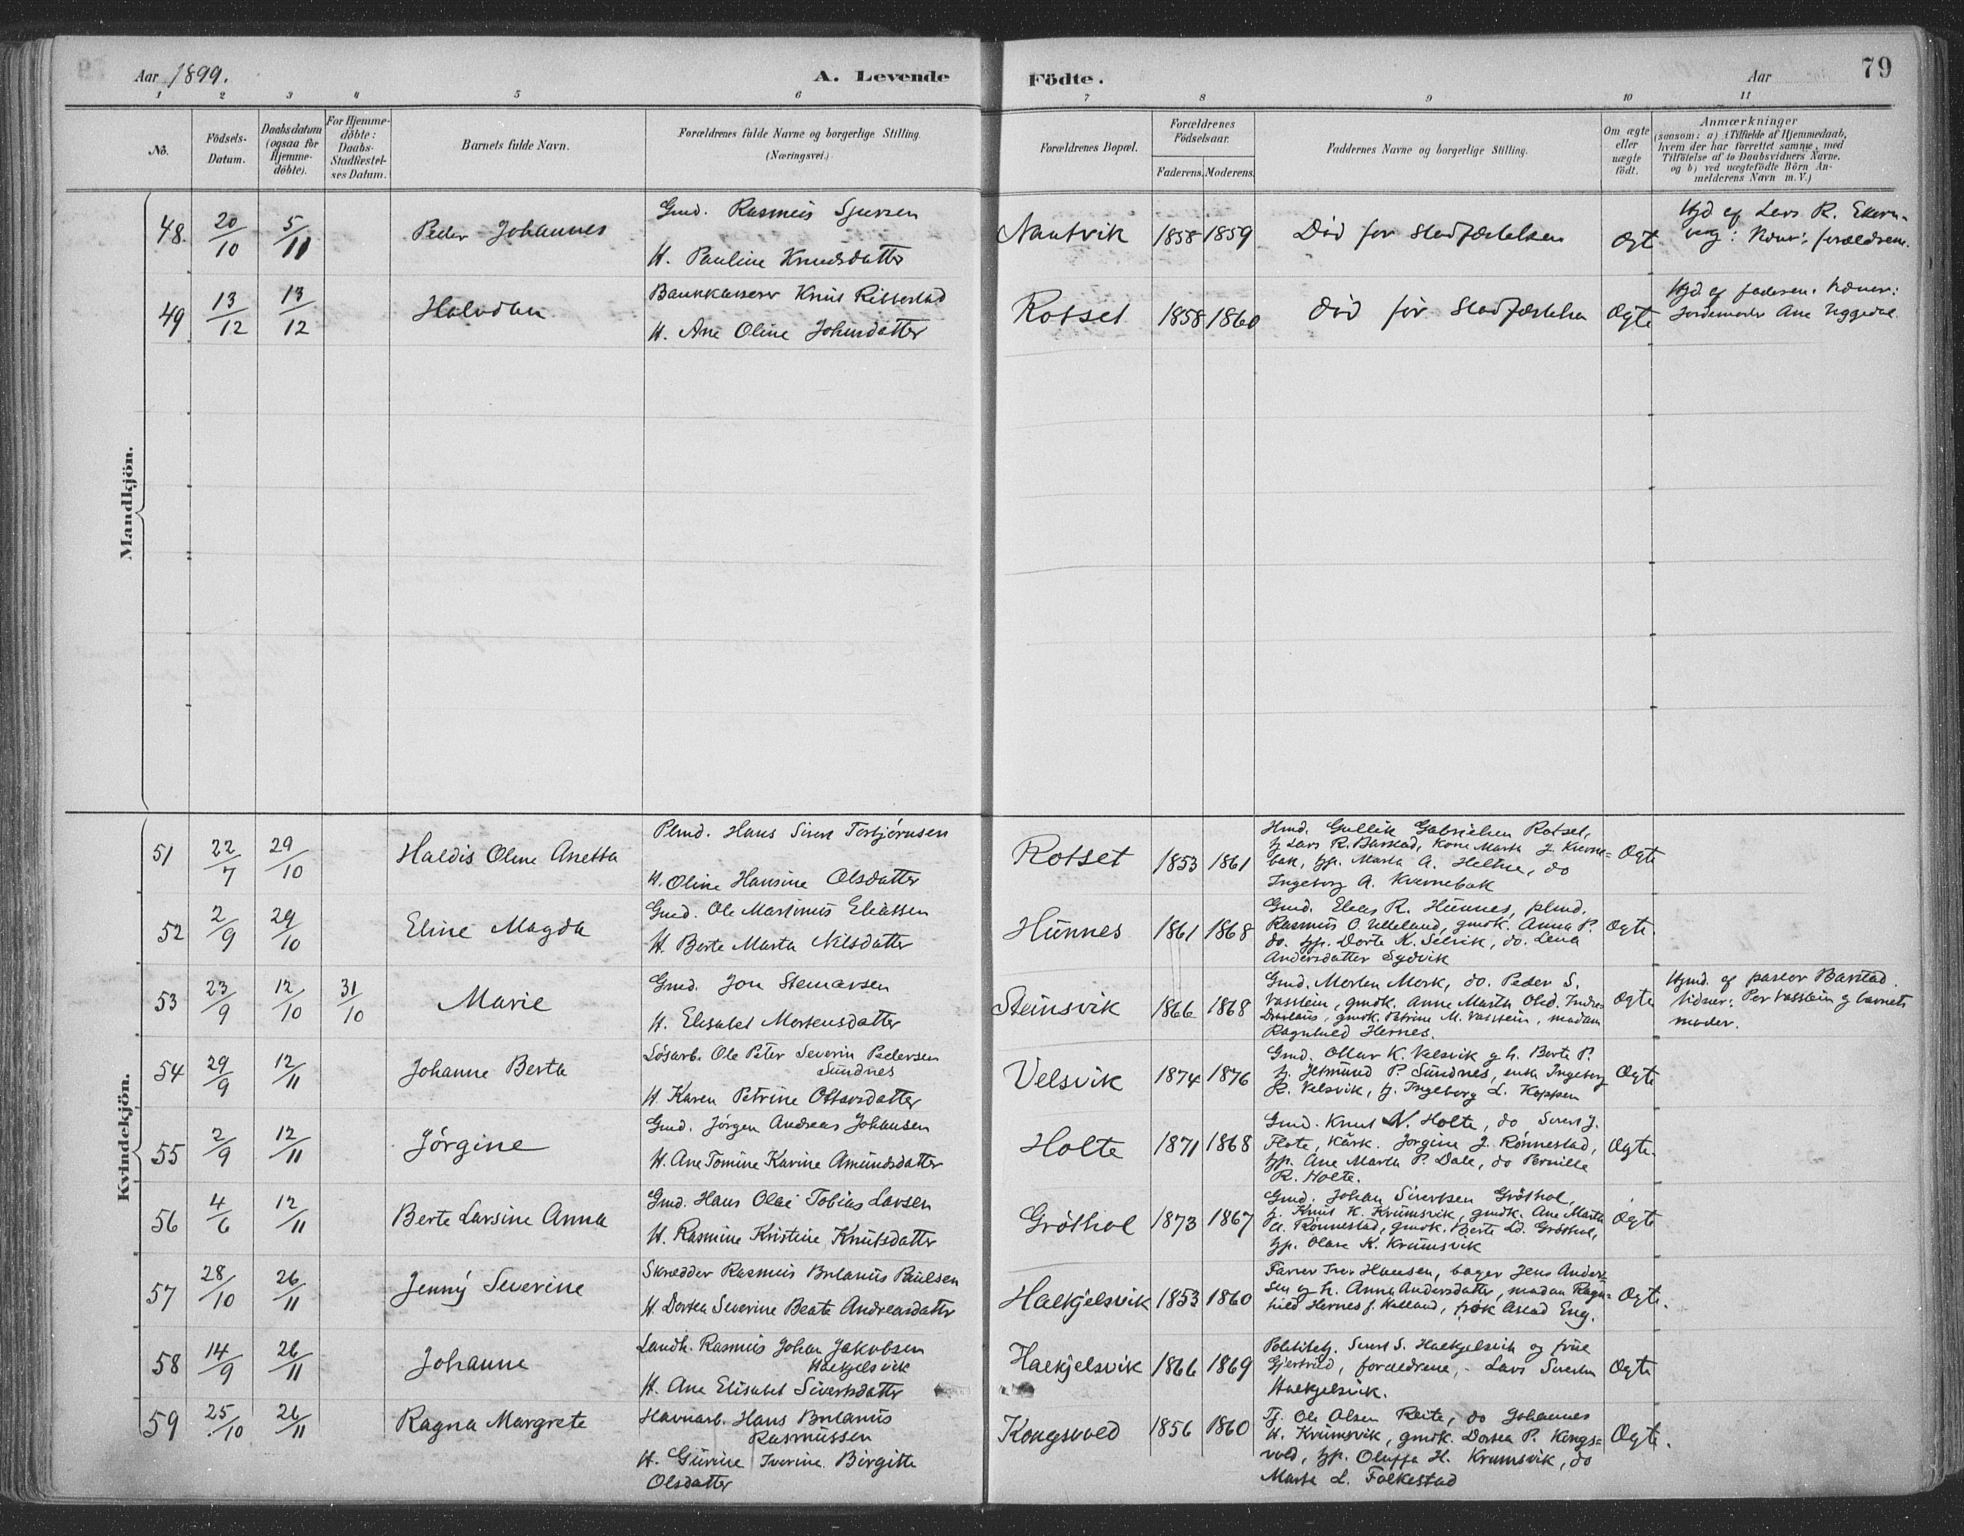 Aar 1899.
A. Levende
Födte.
Aar
79
1 2 3 4 5 6 7 8 9 10 11
No.
Födsels-Datum.
Daabsdatum (ogsaa for Hjemme-döbte).
For Hjemme-döbte: Daabs-Stadfæstel-ses Datum.
Barnets fulde Navn.
Forældrenes fulde Navne og borgerlige Stilling. (Næringsvei.)
Forældrenes Bopæl.
Forældrenes Födselsaar.
Faderens. Moderens.
Faddernes Navne og borgerlige Stilling.
Om ægte eller uægte födt.
Anmærkninger
(saasom: a) i Tilfælde af Hjemmedaab,
hvem der har forrettet samme, med
Tilföielse af to Daabsvidners Navne.
og b) ved uægtefödte Börn An-
melderens Navn m. V.)
Mandkjön.
48. 20/10 5/11 Peder Johannes
Gmd. Rasmus Sjursen
H. Pauline Knudsdatter
Nautvik 1858 1859 Död for stadfæstelsen Ægt
Hjd af Lars R.
forældrene.
49 13/12 13/12 Halvdan
Bankkasserer Knut Ritterstad
H. Ane Oline Johnsdatter
Rotset 1858 1860 Död för Stadfæstelsen Ægte
Hjd af faderen.
Jordemoder Ane Uggedal
Kvindekjön.
51 22/7 29/10 Haldis Oline Anetta
Plmd. Hans Sivert Torbjörnsen
H. Oline Hansine Olsdatter
Rotset 1853 1861
Hmd. Gullik Gabrielsen Rotset,
Lars R. Barstad, Kone Marta J. Kverne-
bak, Marta A. Heltne, do
Ingeborg A. Kvernebak
Ægte
52 2/9 29/10 Eline Magda
Gmd. Ole Martinus Eliassen
H. Berte Marta Nilsdatter
Hunnes 1861 1868
Gmd. Elias R. Hunnes, plmd.
Rasmus O. Ulleland, gmdk. Anna P.
do. Dorte K. Selvik, do. Lena
Andersdatter Sydvik
Ægte.
53 23/9 12/10 31/10 Marie
Gmd. Jon Steinarsen
H. Elisabet Mortensdatter
Steinsvik 1866 1868
Gmd. Morten Mork, do. Peder S.
Vasstein, gmdk. Anne Marth
gmdk. Petrine M. Vasstein, madam
Ragnhild Hernes.
Ægte
Hjmd. af pastor Barstad.
Vidner: Per Vasstein og barnets
moder.
54 29/9 12/11 Johanne Berta
Lösarb. Ole Peter Severin Pedersen
Sundnes
H. Karen Petrine Ottarsdatter
Velsvik 1874 1876
Gmd. Ottar K. Velsvik g h. Berte P.
Jetmund P. Sundnes, enke Ingeborg
R. Velsvik, Ingeborg L. Koppen
Ægte
55 2/9 12/11 Jörgine
Gmd. Jörgen Andreas Johansen
H. Ane Tomine Karine Amundsdatter
Holte 1871 1868
Gmd. Knut N. Holte, do Sivert J.
Flote, Jorgine J. Rönnestad,
Ane Marta P. Dale, do Pernille
R. Holte.
Ægte.
56 4/6 12/11 Berte Larsine Anna
Gmd. Hans Olai Tobias Larsen
H. Rasmine Kristine Knutsdatter
Gröthol 1873 1867
Gmd. Johan Sivertsen Gröthol,
Knut K. Krumsvik, gmdk. Ane Marta
A. Rönnestad, gmdk. Berte Ld. Gröthol,
Olave K. Krumsvik
Ægte
57 28/10 26/11 Jenny Severine
Skrædder Rasmus Bulanus Paulsen
H. Dortea Severine Beate Andreasdatter
Haekjelsvik 1853 1860
Farver Iver Hansen, bager Jens Ander-
sen g h. Anna Andersdatter, madam Ragn-
hild Hernes f. Halland, frök Aslad Eng.
Ægte.
58 14/9 26/11 Johanne
Landh. Rasmus Johan Jakobsen
Haekjelsvik
H. Ane Elisabet Sivertsdatter
Haekjelsvik 1866 1869
Sivert S. Haekjelsvik og frue
Gjertrud, forældrene, Lars Sivertsen
Haekjelsvik.
Ægte
59 25/10 26/11 Ragna Margrete
Havnarb. Hans Bulanus
Rasmussen
H. Gurine Iverine Birgitte
Olsdatter
Kongsvold 1856 1860
Tj. Ole Olsen Reite, do Johannes
H. Krumsvik, gmdk. Dortea P. Kongs-
vold, Oluffa H. Krumsvik, do
Marta L. Folkestad
Ægte.